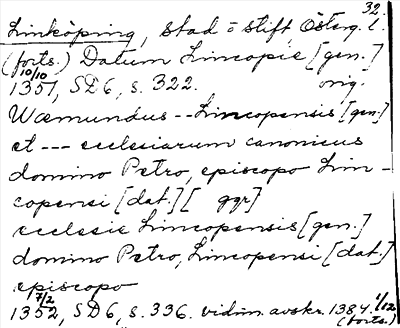 32.
Linköping, stad o stift, Österg. l.
(forts.) Datum Lincopie [gen.]
10/10
1351, SD6, s. 322. orig.
Wæmundus -- Lincopensis [gen.]
et --- ecclesiarum canonicus
domino Petro, episcopo Lin-
copensi [dat.] [ ggr]
ecclesie Lincopensis [gen.]
domino Petro, Lincopensi [dat.]
episcopo
7/2
1352, SD6, s. 336. vidim. avskr. 1384. 1/12
(forts.)